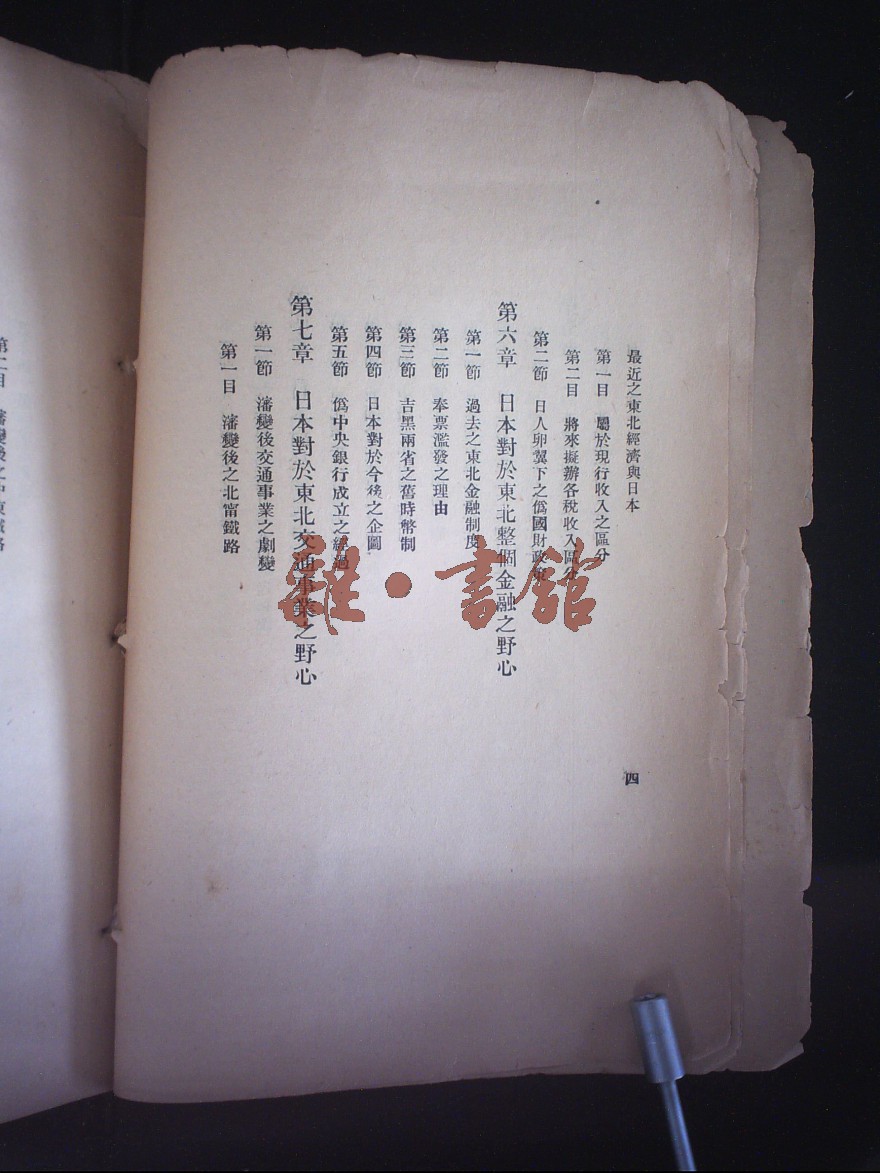 最近之東北經濟與日本
四
第一目 屬於現行收入之區分
第二目 將來擬辦各稅收入區分
第二節 日人卵翼下之僞國財政
第六章 日本對於東北整個金融之野心
第一節 過去之東北金融制度
第二節 奉票濫發之理由
第三節 吉黑兩省之舊時幣制
第四節 日本對於今後之企圖
第五節 僞中央銀行成立之經過
第七章 日本對於東北交通事業之野心
第一節 瀋變後交通事業之劇變
第一目 瀋變後之北甯鐵路
第二目 瀋變後之中東鐵路
雜·書館